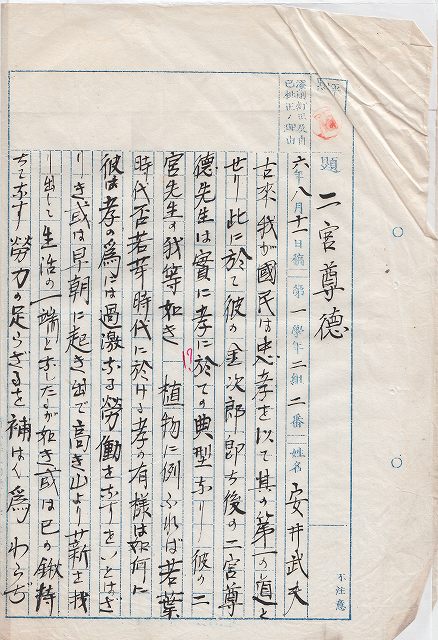 題 二宮尊德
六年八月十一日稿 第一學年二組二番 姓名 安井武夫
古來我が國民は忠孝を以て其の第一の道と
せり此に於て彼の金次郎即ち後の二宮尊
德先生は實に孝に於ての典型なり彼の二
宮先生の我等如き 植物に例ふれば若葉
時代否若芽時代に於ける孝の有様は如何に
彼は孝の爲には過激なる勞働をなすをいとはざ
りき或は早朝に起き出で高き山より薪を
り出して生活の一端となしたるが如き或は己の鍬持
ちてなす勞力の足らざるを補はん爲わらぢ
不注意